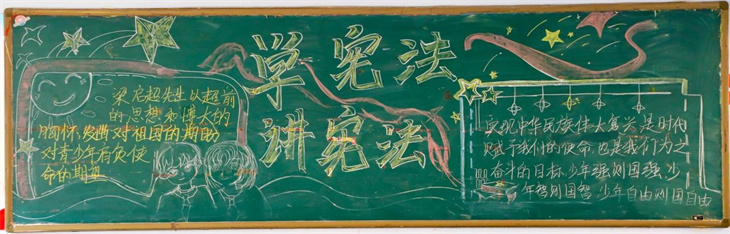 学宪法
讲宪法
梁启超先生以超前
的思想和博大的
胸怀,发 对祖国的期盼
对青少年有负使
命的期望
实现中华民族伟大复兴是时代
赋予我们的使命,也是我们为之
奋斗的目标,少年强则国强,少
年智则国智,少年自由则国自由